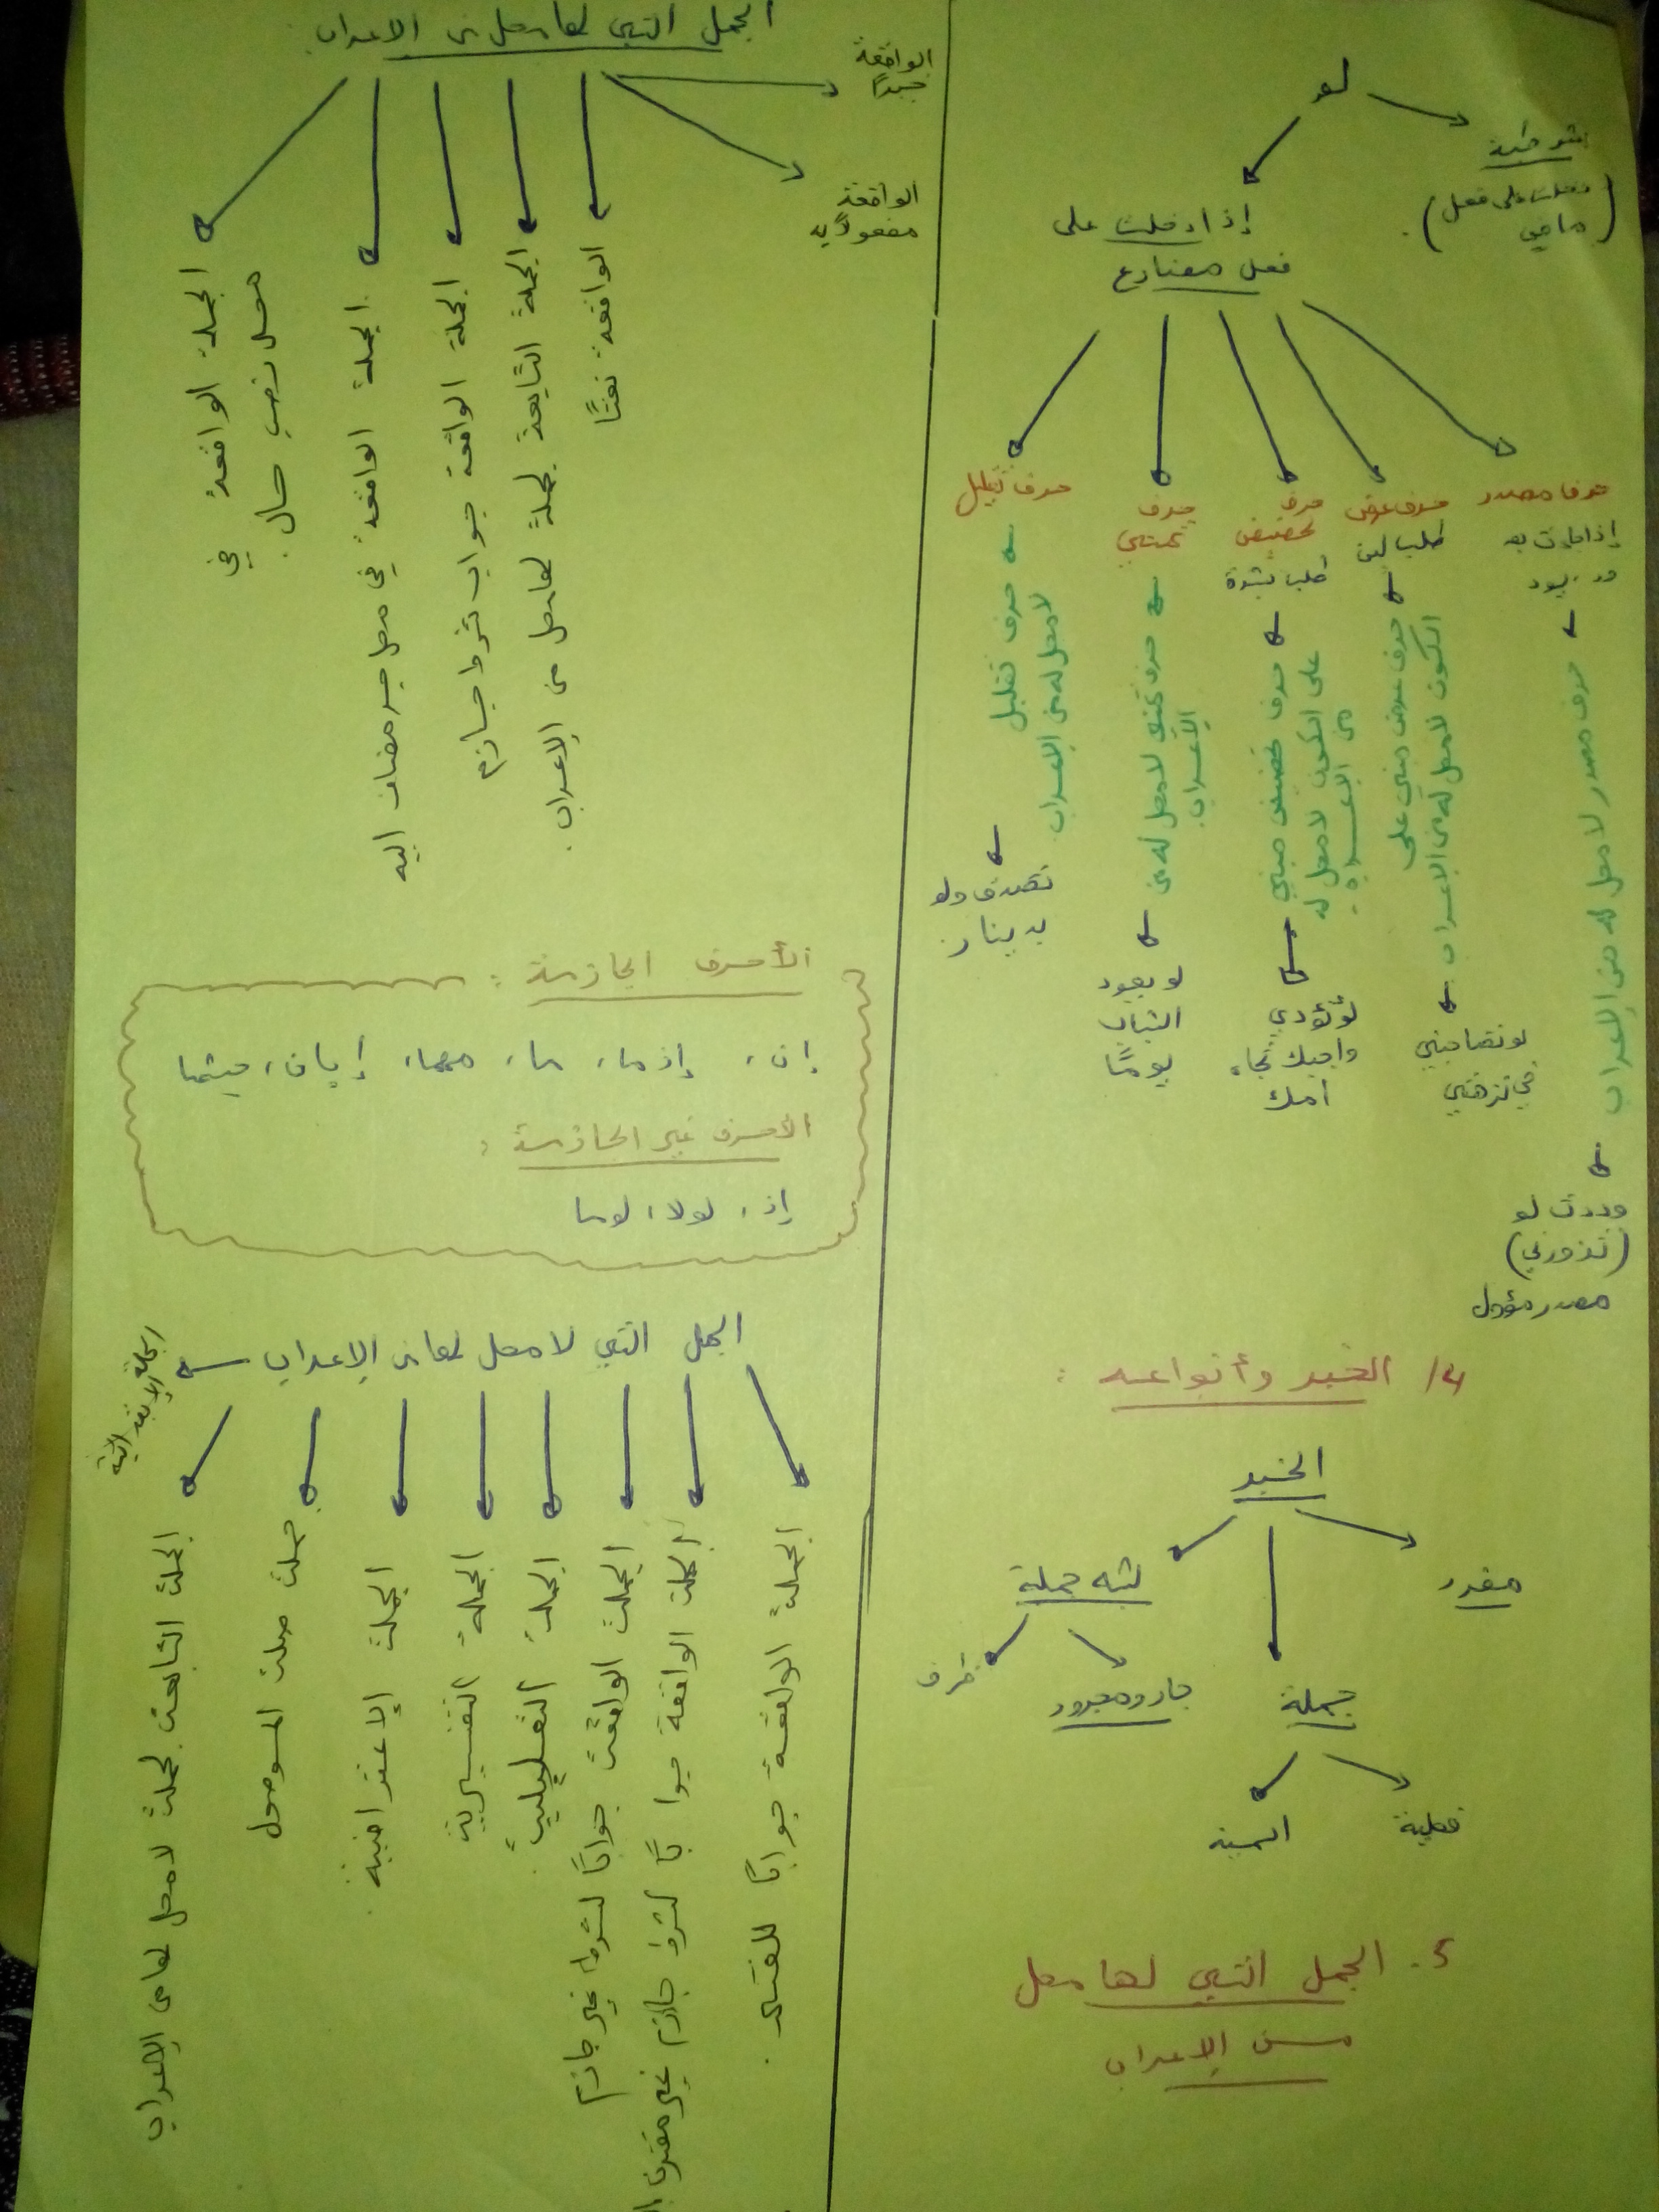 لو
شرطية
(دخلت على فعل
ماضي)
إذا دخلت على
فعل مضارع
حرف مصدر
إذا جاءت بعد
ود، يود
حرف مصدر لا محل له من الإعراب
وددت لو
(تزورني)
مصدر مؤول
حرف عرض
طلب لين
حرف عرض مبني على
السكون لا محل له من الإعراب
لو تصاحبني
في نزهتي
حرف
تحضيض
طلب بشدة
حرف تحضيض مبني
على السكون لا محل له
من الإعراب.
لو تؤدي
واجبك تجاه
امك
حرف
تمني
حرف تمني لا محل له من
الإعراب.
لو يعود
الشباب
يومًا
حرف تقليل
حرف تقليل
لا محل له من الإعراب
تصدق ولو
بدينار.
4/ الخبر وأنواعه :
الخبر
مفرد
جملة
فعلية
اسمية
شبه جملة
جار ومجرور
ظرف
5. الجمل التي لها محل
من الإعراب
الجمل التي لها محل من الإعراب.
الواقعة
خبرًا
الواقعة
مفعولاً به
الواقعة نعتًا
الجملة التابعة لجملة لها محل من الإعراب.
الجملة الواقعة جواب شرط جازم
الجملة الواقعة في محل جر مضاف اليه
الجملة الواقعة في
محل نصب حال.
الأحرف الجازمة :
إن، إذما، ما، مهما، إيان، حيثما
الأحرف غير الجازمة :
إذ، لولا، لوما
الجمل التي لا محل لها من الإعراب
الجملة الابتدائية
الجملة الواقعة جوابًا للقسم.
الجملة الواقعة جوابًا لشرط جازم غير مقترن
الجملة الواقعة جوابًا لشرط غير جازم
الجملة التعليلية.
الجملة التفسيرية
الجملة الإعتراضية.
جملة صلة الموصول
الجملة التابعة لجملة لا محل لها من الإعراب